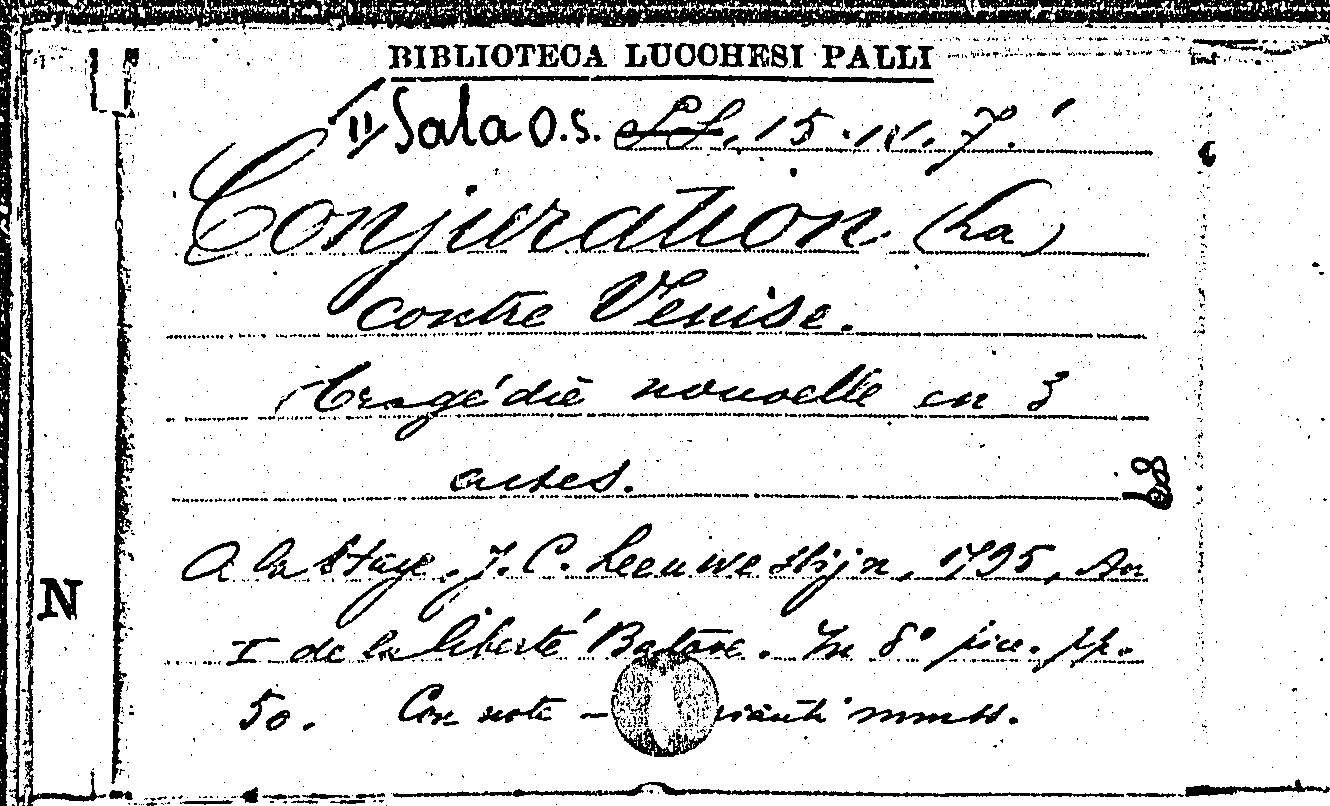 BIBLIOTECA LUCCHESI PALLI
Sala O.S. 15. IV. 7.
Conjuration (La)
contre Venise.
Tragédie nouvelle en 3
actes.
68
A la Haye. J. C. Leeuwestijn, 1795, An
N
I de la liberté Batave. In 8° picc. pp.
50. Con note – mmss.